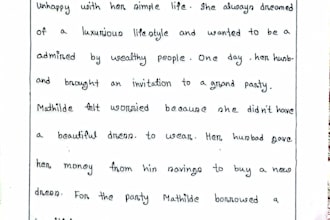 unhappy with her simple life. She always dreamed
of a luxurious lifestyle and wanted to be a
admired by wealthy people. One day, her husb-
and brought an invitation to a grand party.
Mathilde felt worried because she didn't have
a beautiful dress to wear. Her husbad gave
her money from his savings to buy a new
dress. For the party Mathilde borrowed a